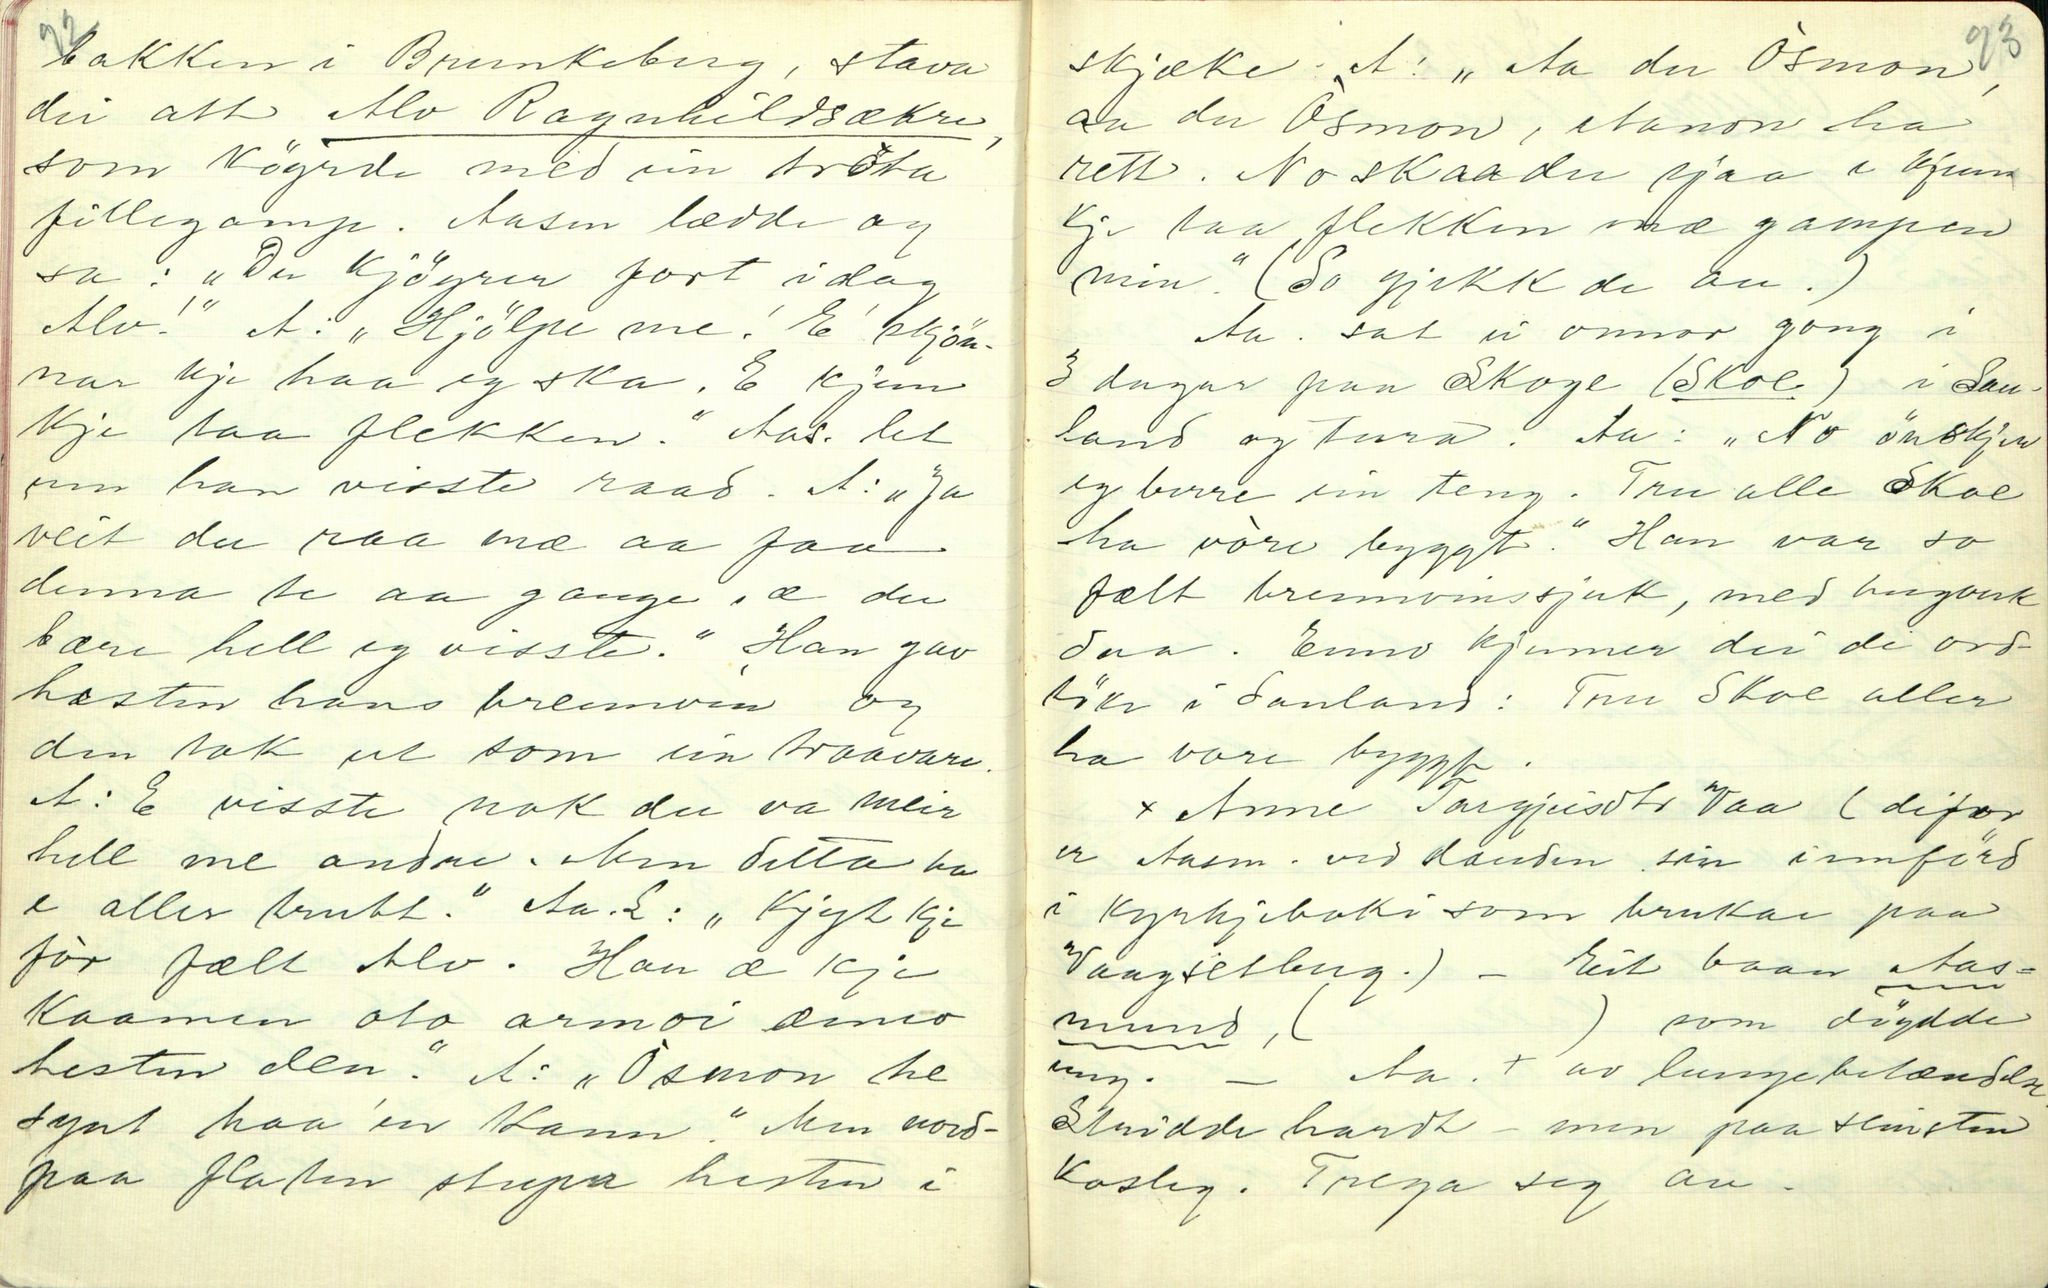 92
bakken i Brunkeberg, stava
dei att Alv Ragnhildsækre,
som köyrde med ein tröta
fillegamp. Aasen lædde og
sa: „Du kjöyrer fort idag
Alv!" A: „Hjölpe me! E skjön-
nar kje haa eg ska. E kjem
kje taa flekken." Aas. let
um han visste raad. A: „Ja
veit du raa mæ aa faa
denna te aa gange, æ du
bære hell eg visste." Han gav
hesten hans brennvin og
den tok ut som ein traavare.
A: E visste nok du va meir
hell me andre. Men ditta ha
e aller trutt." Aa. L: „Kjyt kje
fòr fælt Alv. Han æ kje
kaamen oto armoi ænno
hesten den." A: „Òsmon he
synt haa 'en kann". Men nord-
paa flaten stupa hesten i
93
skjæke. A: „Aa du Òsmon,
aa du Òsmon, Aanon ha
rett. No skaa du sjaa e kjem
kje taa flekken mæ gampen
min." (So gjekk de au.)
Aa. sat ei onnor gong i
3 dagar paa Skoge (Skoe) i Sau-
land og tura. Aa: „No önskjer
eg berre ein teng. Tru alle Skoe
ha vòre byggt." Han var so
fælt brennvinssjuk, med hugverk
daa. Enno kjemer dei de ord-
töke i Sauland: Tru Skoe aller
ha vore byggt.
x Anne Targjeisdtr Vaa (difor
er Aasm. ved dauden sin innförd
i kyrkjeboki som brukar paa
Vaagsetbug.) – Eit baan Aas-
mund, ( ) som döydde
ung. – Aa. + av lungebetændelse.
Stridde hardt – men paa slutten
koslig. Trega seg au.